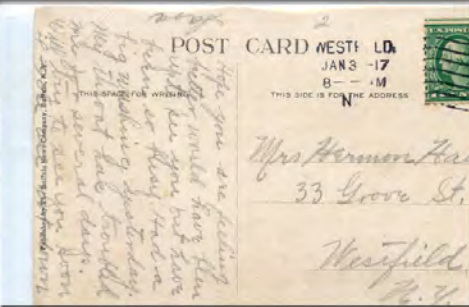 2
POST CARD
WESTF LD,
JAN 3 -17
8- - M
N
U.S. POST
THIS SPACE FOR WRITING
THIS SIDE IS FOR THE ADDRESS
Hope you are feeling
better would have
you but have
been so Had a
big washing yesterday.
My throat has troubled
me for several days.
Will try to see you soon
Mrs Hermon
33 Grove St.
Westfield
N.Y.